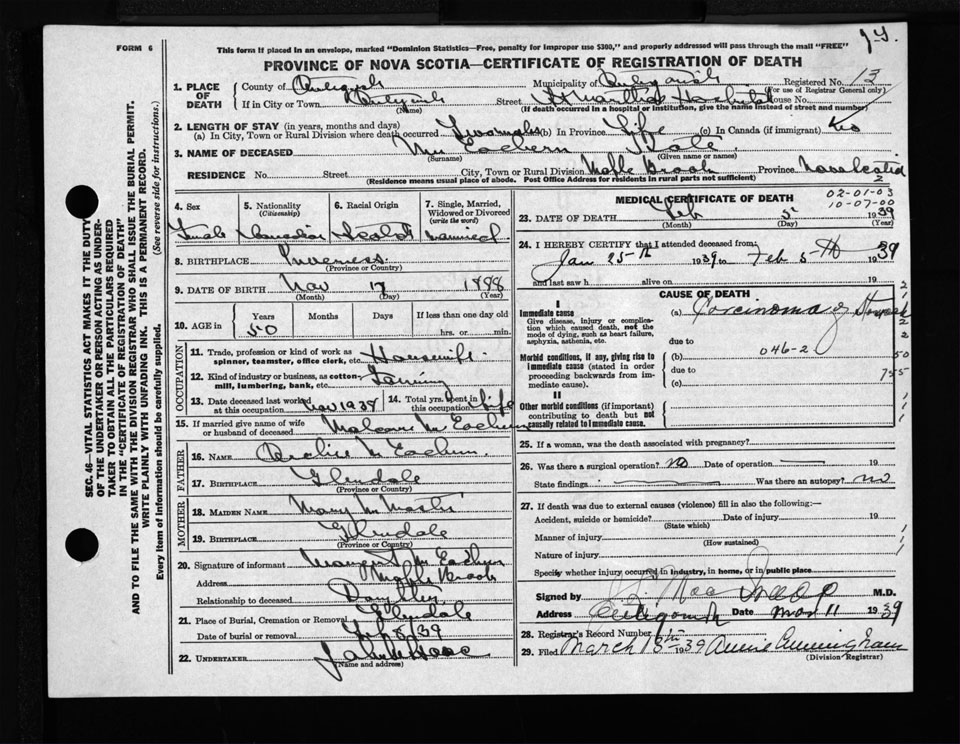 FORM 6
This form if placed in an envelope, marked "Dominion Statistics—Free, penalty for improper use $300," and properly addressed will pass through the mail "FREE"
PROVINCE OF NOVA SCOTIA—CERTIFICATE OF REGISTRATION OF DEATH
1. PLACE OF DEATH County of Antigonish Municipality of Antigonish Registered No. 13
(For use of Registrar General only)
If in City or Town Antigonish Street St Martha's Hospital House No.
(Name) (If death occurred in a hospital or institution, give the name instead of street and number)
2. LENGTH OF STAY (in years, months and days)
(a) In City, Town or Rural Division where death occurred (b) In Province Life (c) In Canada (if immigrant) No
3. NAME OF DECEASED Mc Eachern Kate
(Surname) (Given name or names)
RESIDENCE No. Street City, Town or Rural Division Maple Brook Province Nova Scotia
(Residence means usual place of abode. Post Office Address for residents in rural parts not sufficient)
2
4. Sex Female
5. Nationality (Citizenship) Canadian
6. Racial Origin Scotch
7. Single, Married, Widowed or Divorced (write the word) Married
8. BIRTHPLACE Inverness
(Province or Country)
9. DATE OF BIRTH Nov 17 1898
(Month) (Day) (Year)
10. AGE in Years Months Days If less than one day old
50 hrs. or min.
OCCUPATION
11. Trade, profession or kind of work as spinner, teamster, office clerk, etc. Housewife
12. Kind of industry or business, as cotton-mill, lumbering, bank, etc. Farming
13. Date deceased last worked at this occupation Nov 1938
14. Total yrs. spent in this occupation Life
15. If married give name of wife or husband of deceased Mc Eachern
FATHER
16. NAME Mc Eachern
17. BIRTHPLACE Glendale
(Province or Country)
MOTHER
18. MAIDEN NAME Mary Mc Master
19. BIRTHPLACE Glendale
(Province or Country)
20. Signature of informant Margaret Mc Eachern
Address Maple Brook
Relationship to deceased Daughter
21. Place of Burial, Cremation or Removal Glendale
Date of burial or removal Feb 8/39
22. UNDERTAKER
(Name and address)
MEDICAL CERTIFICATE OF DEATH
02-01-03
10-07-00
23. DATE OF DEATH Feb 5 1939
(Month) (Day) (Year)
24. I HEREBY CERTIFY that I attended deceased from
Jan 25th 1939 to Feb 5th 1939
and last saw h alive on 19
CAUSE OF DEATH
I
Immediate cause
Give disease, injury or complication which caused death, not the mode of dying, such as heart failure, asphyxia, asthenia, etc.
(a) Carcinoma of Stomach
due to
Morbid conditions, if any, giving rise to immediate cause (stated in order proceeding backwards from immediate cause).
(b) 046-2
due to
(c)
II
Other morbid conditions (if important) contributing to death but not causally related to immediate cause.
25. If a woman, was the death associated with pregnancy?
26. Was there a surgical operation? No Date of operation 19
State findings Was there an autopsy? No
27. If death was due to external causes (violence) fill in also the following:
Accident, suicide or homicide? Date of injury 19
(State which)
Manner of injury
(How sustained)
Nature of injury
Specify whether injury occurred in industry, in home, or in public place
Signed by M.D.
Address Antigonish Date Mar 11 1939
28. Registrar's Record Number
29. Filed March 1939 Annie Cunningham
(Division Registrar)
SEC. 46—VITAL STATISTICS ACT MAKES IT THE DUTY
OF THE UNDERTAKER OR PERSON ACTING AS UNDER-
TAKER TO OBTAIN ALL THE PARTICULARS REQUIRED
IN THE "CERTIFICATE OF REGISTRATION OF DEATH"
AND TO FILE THE SAME WITH THE DIVISION REGISTRAR WHO SHALL ISSUE THE BURIAL PERMIT.
WRITE PLAINLY WITH UNFADING INK. THIS IS A PERMANENT RECORD.
Every item of information should be carefully supplied. (See reverse side for instructions.)